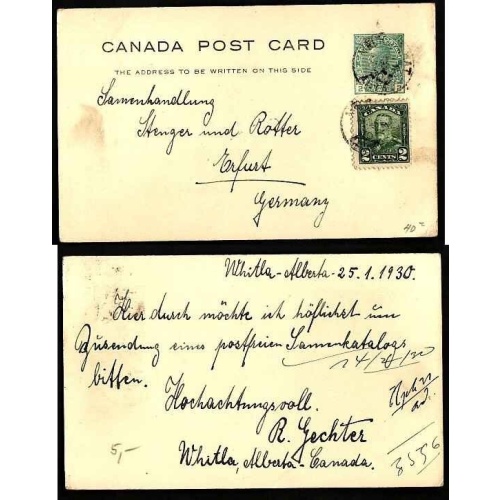 CANADA POST CARD
THE ADDRESS TO BE WRITTEN ON THIS SIDE
CANADA
2 CENTS 2
Samenhandlung
Stenger und Rotter
Erfurt
Germany
40=
Whitla-Alberta-25.1.1930.
Hier durch möchte ich höflichst um
Zusendung eines postfreien Samenkatalogs
bitten.
Hochachtungsvoll.
R. Gechter
5,-
Whitla, Alberta-Canada.
3556